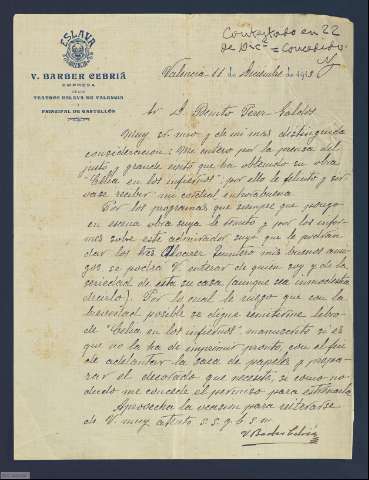 ESLAVA
V. BARBER CEBRIÁ
EMPRESA
DE LOS
TEATROS ESLAVA DE VALENCIA
Y
PRINCIPAL DE CASTELLÓN
Contestado en 22
de Dic.e = Concedido.
Valencia 11 de Diciembre de 1913
Sr. D. Benito Perez Galdós
Muy Sr. mio y de mi mas distinguida
consideracion: Me entero por la prensa del
justo y grande exito que ha obtenido su obra
"Celia en los infiernos" por ello le felicito y sir
vase recibir mi cordial enhorabuena
Por los programas que siempre que pongo
en escena obra suya le remito y por los infor
mes sobre este admirador suyo que le podrian
dar los Sres Alvarez Quintero mis buenos ami
gos se podra V. enterar de quien soy y de la
seriedad de esta su casa (aunque sea inmodestia
decirlo). Por lo cual le ruego que con la
brevedad posible se digne remitirme libro
de "Celia en los infiernos" manuscrito si es
que no la ha de imprimir pronto, con el fin
de adelantar la saca de papeles y prepa
rar el decorado que necesite, si como no
dudo me concede el permiso para estrenarla
Aprovecha la ocasion para reiterarse
de V. muy atento s. s. q. b. s. m.
V Barber Cebriá